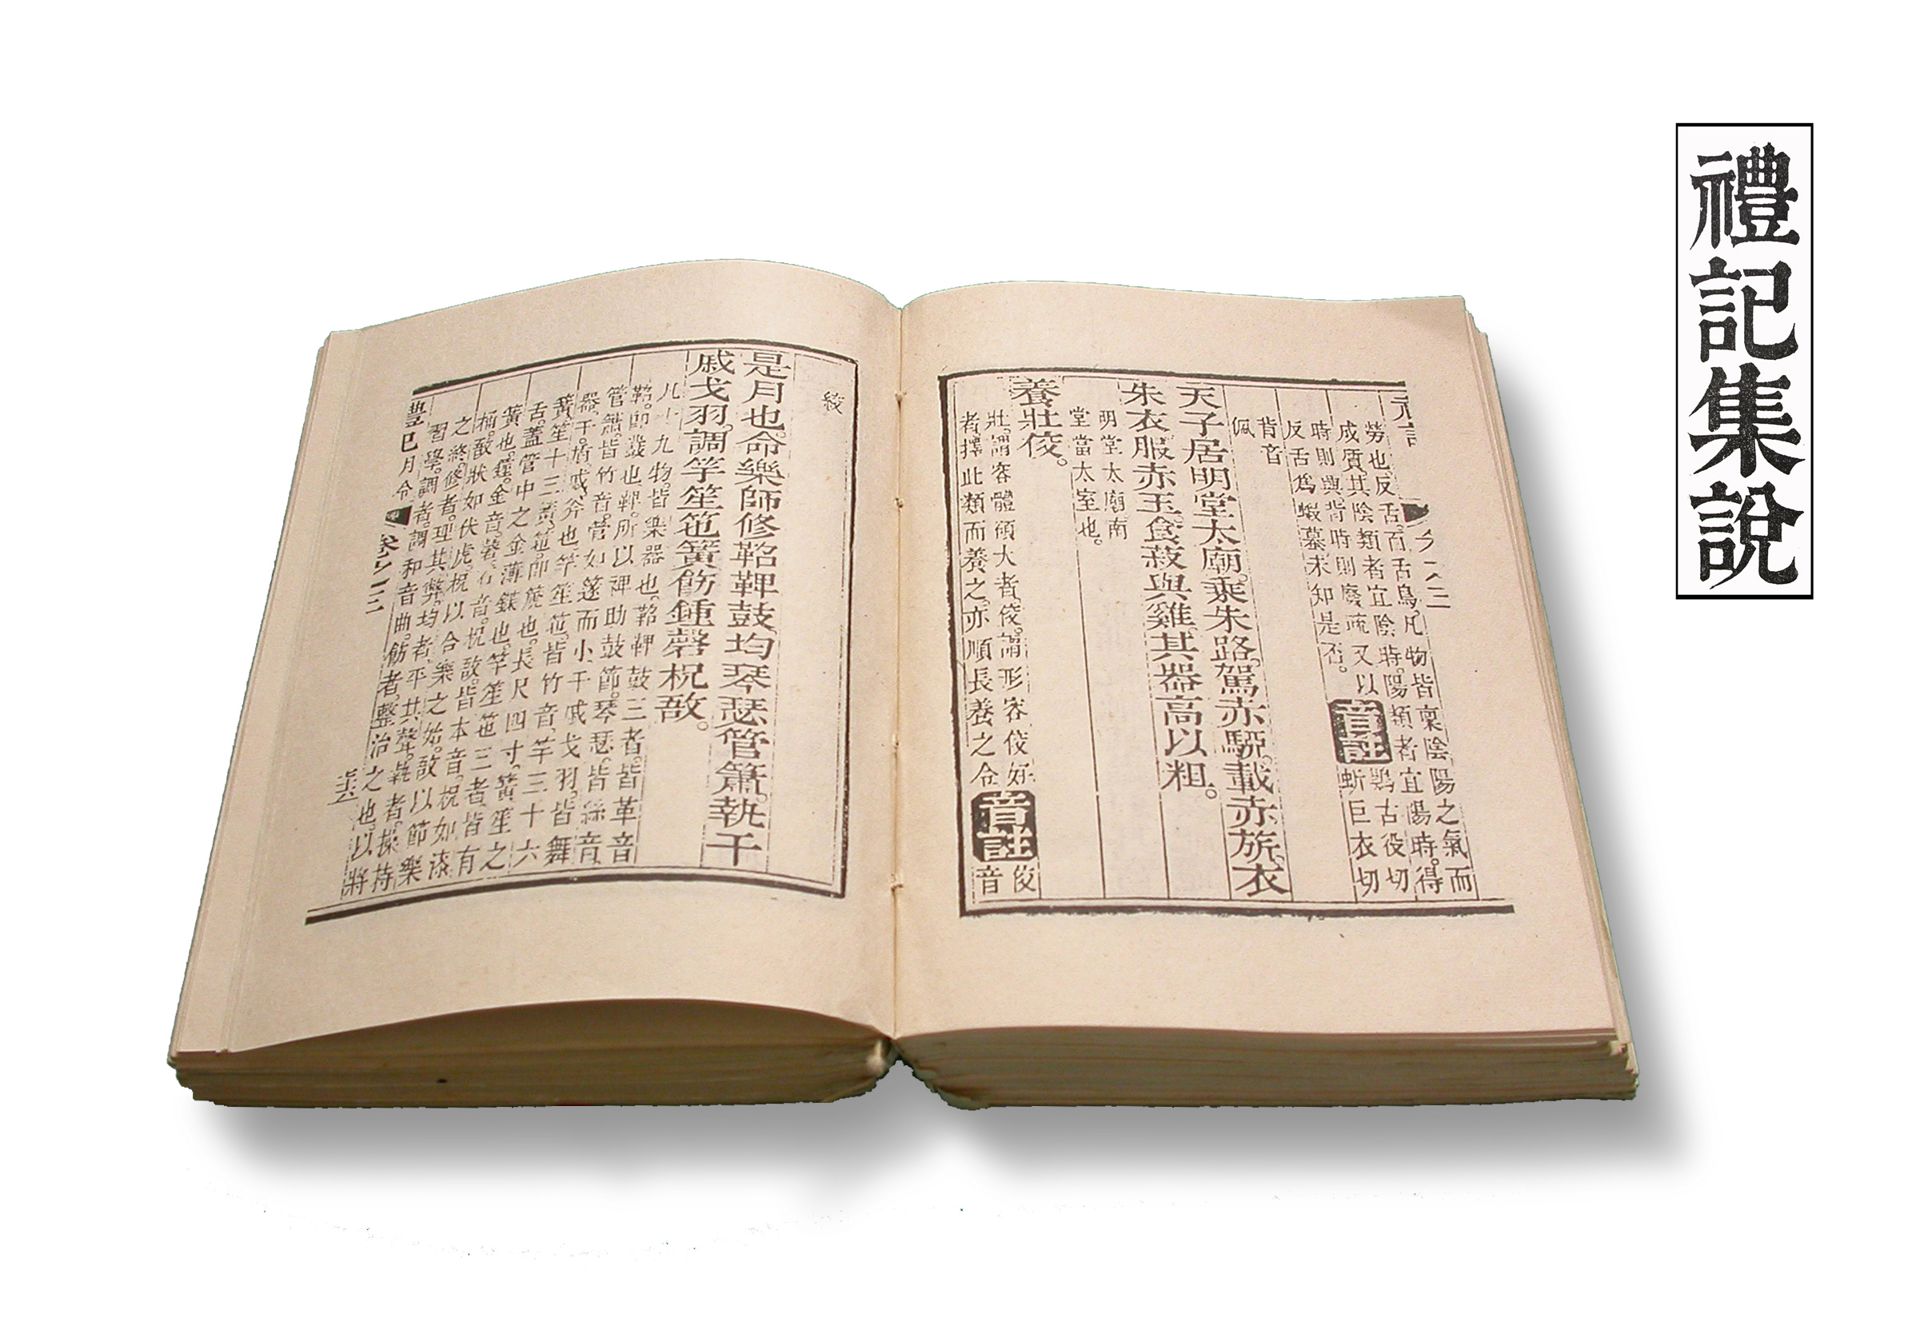 禮記集說
勞也反舌百舌鳥凡物皆稟陰陽之氣而
成質其陰類者宜陰時陽類者宜陽時得
時則興背時則廢疏又以
反舌為蝦蟇未知是否
音註
鵙古役切
蚈巨衣切
背音
佩
天子居明堂太廟乘朱路駕赤駵載赤旂衣
朱衣服赤玉食菽與雞其器高以粗。
明堂太廟南
堂當太室也。
養壯佼。
壯謂容體碩大者佼謂形容佼好
者擇此類而養之亦順長養之令
音註
佼音
絞
是月也命樂師修鞀鞞鼓均琴瑟管簫執干
戚戈羽調竽笙竾簧飭鍾磬柷敔。
凡十九物皆樂器也鞀鞞鼓三者皆革音
鞀即鼗也鞞所以裨助鼓節琴瑟皆絲音
管簫皆竹音管如篴而小干戚戈羽皆舞
器干盾戚斧也竽笙竾皆竹音竽三十六
簧笙十三簧竾即篪也長尺四寸簧笙之
舌蓋管中之金薄鍱也竽笙竾三者皆有
簧也鍾金音磬石音柷敔皆木音柷如漆
桶敔狀如伏虎柷以合樂之始敔以節樂
之終修者理其弊均者平其聲執者操持
習學調者調和音曲飭者整治之也以將
月令
卷之三